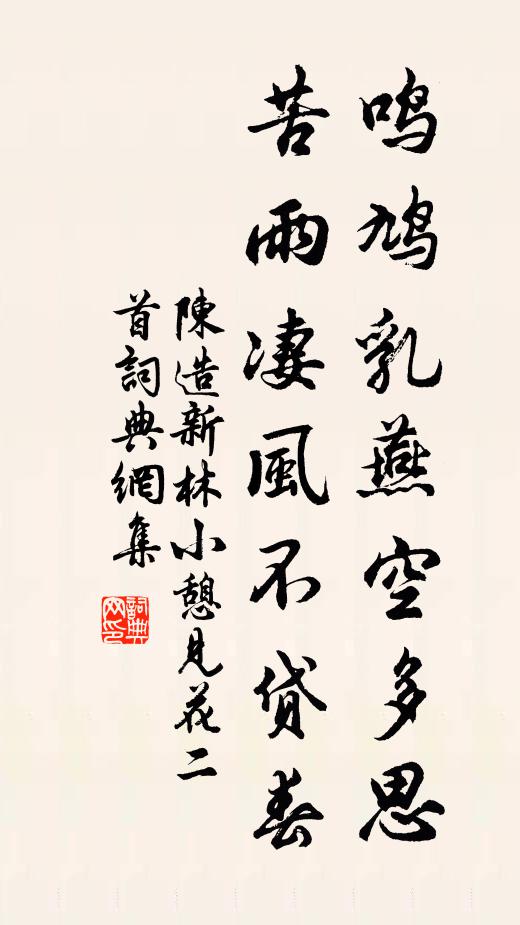 鸣鸠乳燕空多思
苦雨凄風不贷春
陳造新林小憩见花二
首詞典網集
詞典
网印